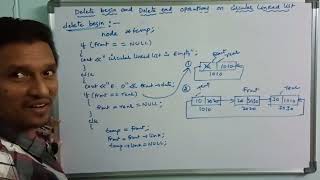 Delete begin and Delete end operations on circular linked list
delete begin :-
node *temp;
if (front == NULL)
{
cout<<" circular linked list is empty";
}
else
{
cout<<" front→data;
if (front == rear)
{
front = rear = NULL;
}
else
{
temp = front;
front = front→link;
temp→link = NULL;
① front rear
1010
1010
② front front rear
10 2020 2030 1010
1010 2020 2030